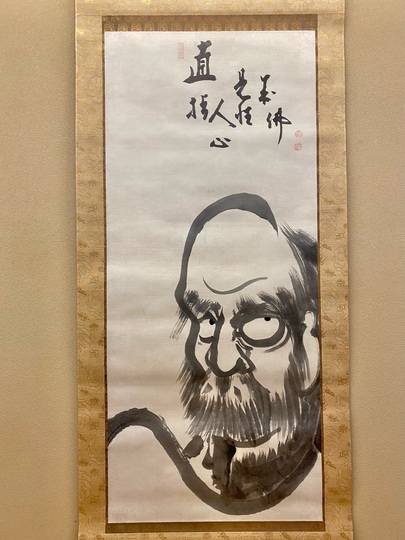 直指
人心
見性
成佛